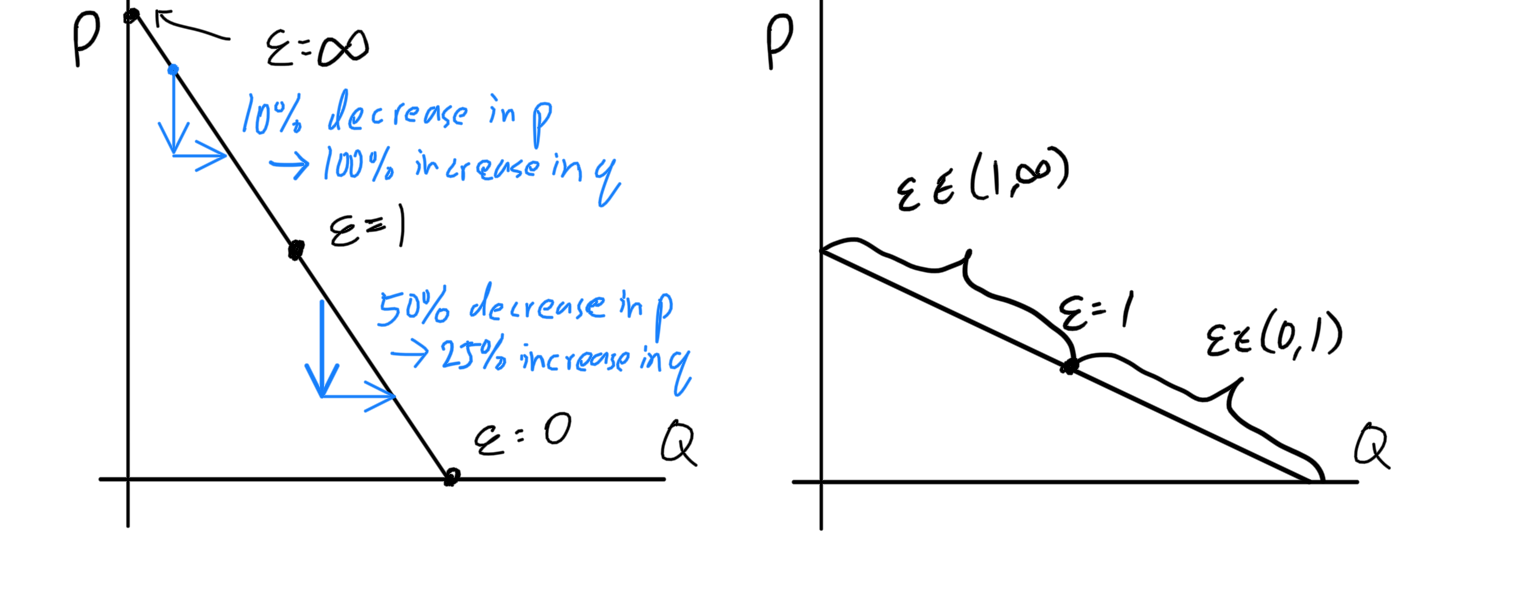 P
ε=∞
10% decrease in p
→ 100% increase in q
ε=1
50% decrease in p
→ 25% increase in q
ε=0
Q
P
ε∈(1,∞)
ε=1
ε∈(0,1)
Q